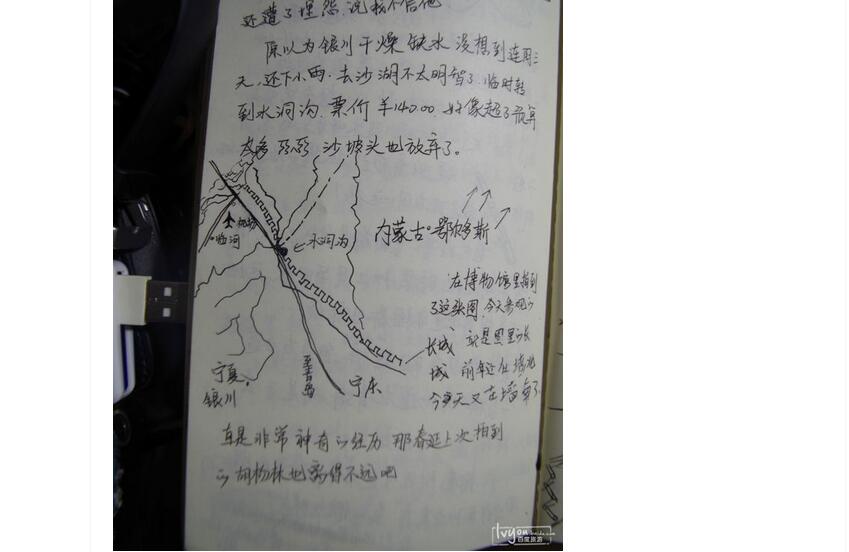 还遭了埋怨,说我不信他
原以为银川干燥缺水 没想到连阴三
天,还下小雨.去沙湖不太明智了.临时转
到水洞沟.票价 ¥140.00. 好像超了预算
太多 沙坡头也放弃了。
机场
临河
水洞沟
内蒙古 鄂尔多斯
在博物馆里拍到
了这张图,今天来的
长城 就是那里的长
城 前年还在墙北
今天又在墙南了.
宁夏.
银川
至青岛
宁东
真是非常神奇的经历 那春延上次拍到
的胡杨林也离得不远吧
lvyou.baidu.com
百度旅游